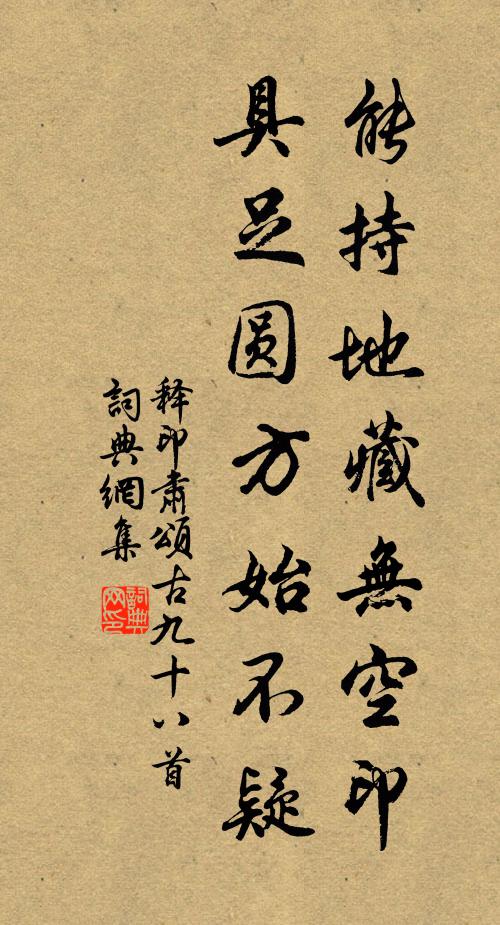 能持地藏無空印
具足圆方始不疑
释印肅頌古九十八首
詞典網集
詞典网印